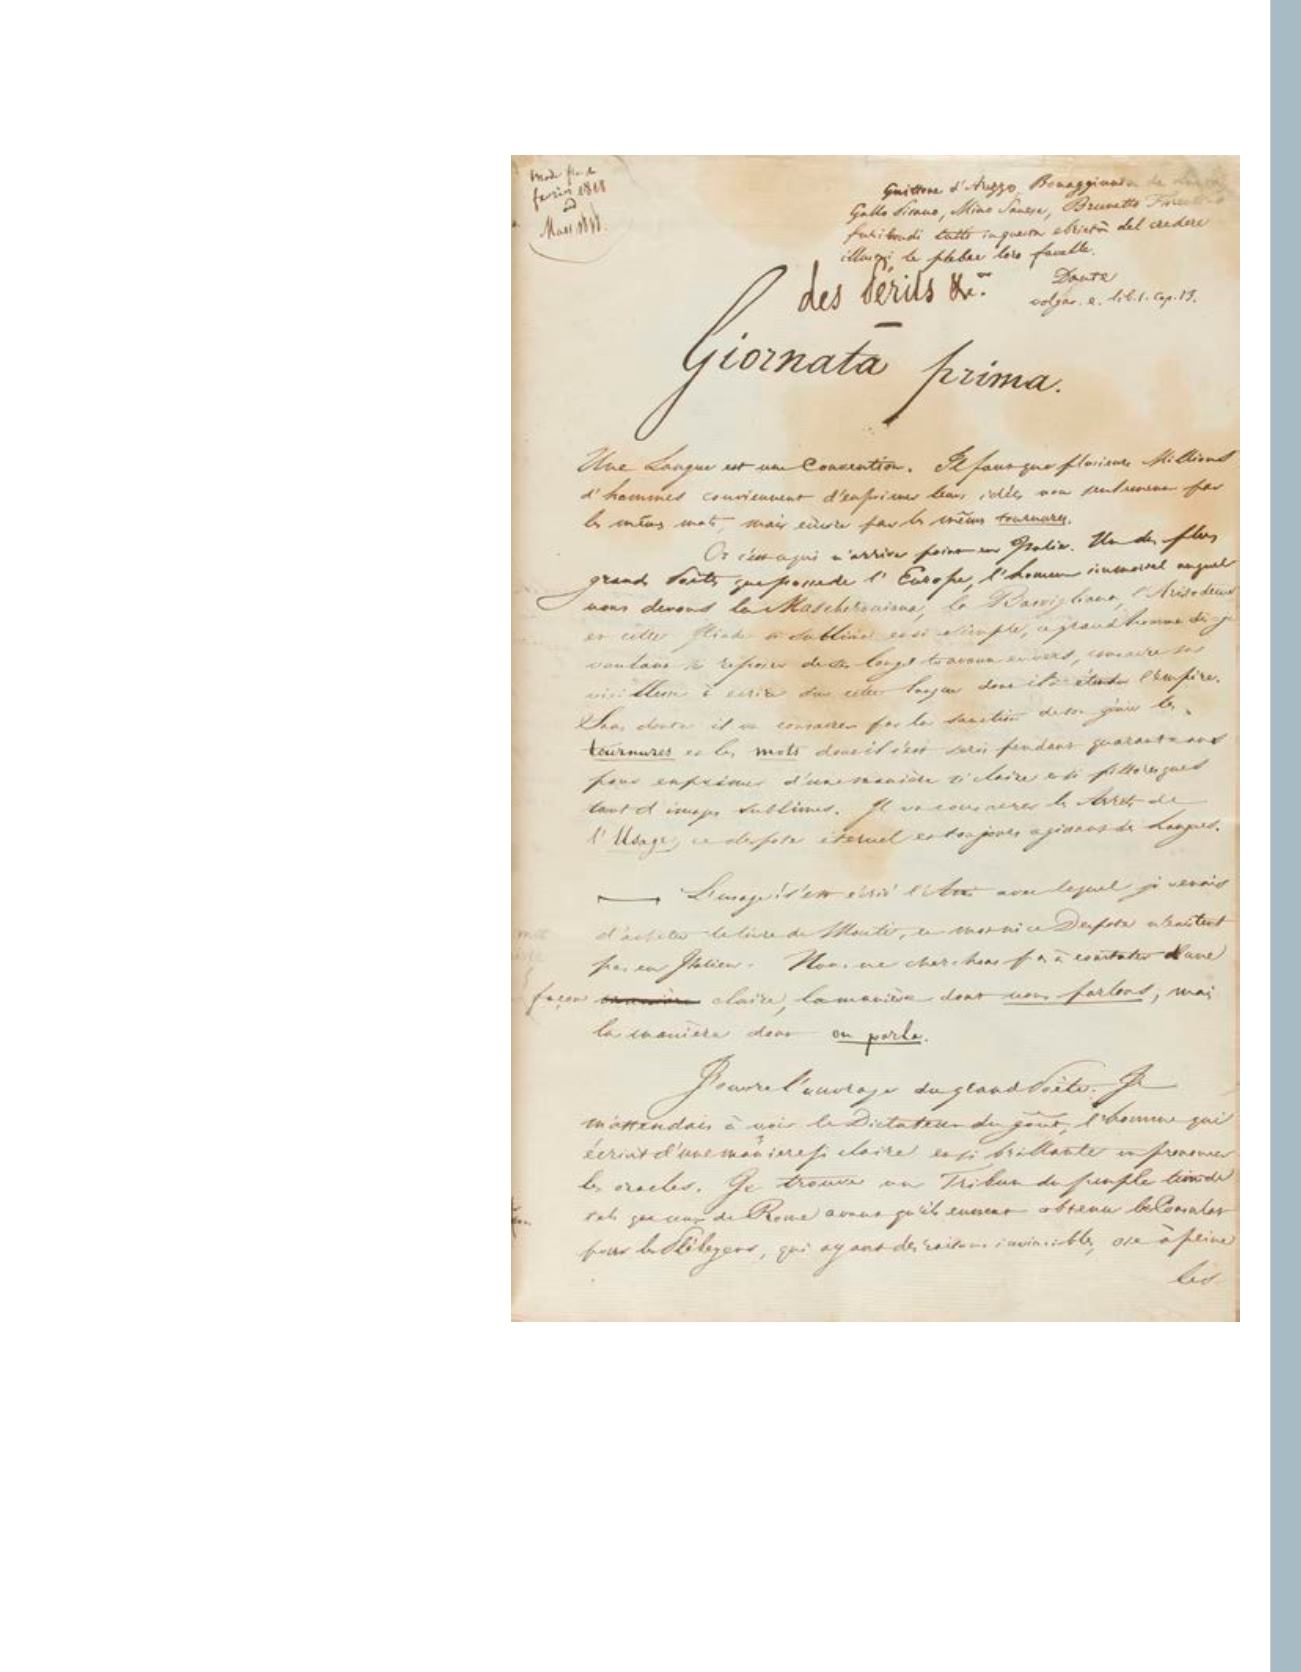 Made fin de
février 1818
and
Mars 1818.
Guittone d'Arezzo, Bonaggiunta da Lucca,
Gallo Pisano, Mino Sanese, Brunetto Fiorentino
furibondi tutti in questa ebrietà del credere
illustri le plebee loro favelle.
Dante
volgar. e. lib. 1. cap. 13.
des Périls &c.
Giornata prima.
Une Langue est une Convention. Il faut que plusieurs Millions
d'hommes conviennent d'exprimer leurs idées non seulement par
les mêmes mots, mais encore par les mêmes tournures.
Or c'est ce qui n'arrive point en Italie. Un des plus
grands Poëtes que possede l'Europe, l'homme immortel auquel
nous devons la Mascheroniana, la Basvigliana, l'Aristodemo
et cette Iliade si sublime et si simple, ce grand homme dis-je
voulant se reposer de ses longs travaux en vers, consacre sa
vieillesse à écrire sur cette langue dont il a étendu l'empire.
Sans doute il va consacrer par la sanction de son génie les
tournures et les mots dont il s'est servi pendant quarante ans
pour exprimer d'une manière si claire et si pittoresques
tant d'images sublimes. Il va consacrer les Arrets de
l'Usage, ce despote éternel et toujours agissant des langues.
L'usage! s'est écrié l'Ami avec lequel je venais
d'acheter le livre de Monti, ce mot ni ce Despote n'existent
pas en Italien. Nous ne cherchons pas à constater d'une
façon manière claire, la manière dont nous parlons, mais
la manière dont on parla.
J'ouvre l'ouvrage du grand Poëte. Je
m'attendais à voir le Dictateur du goût, l'homme qui
écrivit d'une manière si claire et si brillante en prononcer
les oracles. Je trouve un Tribun du peuple timide
tels que ceux de Rome avant qu'ils eussent obtenu le Consulat
pour les Plébeyens, qui ayant des raisons invincibles, ose à peine
les